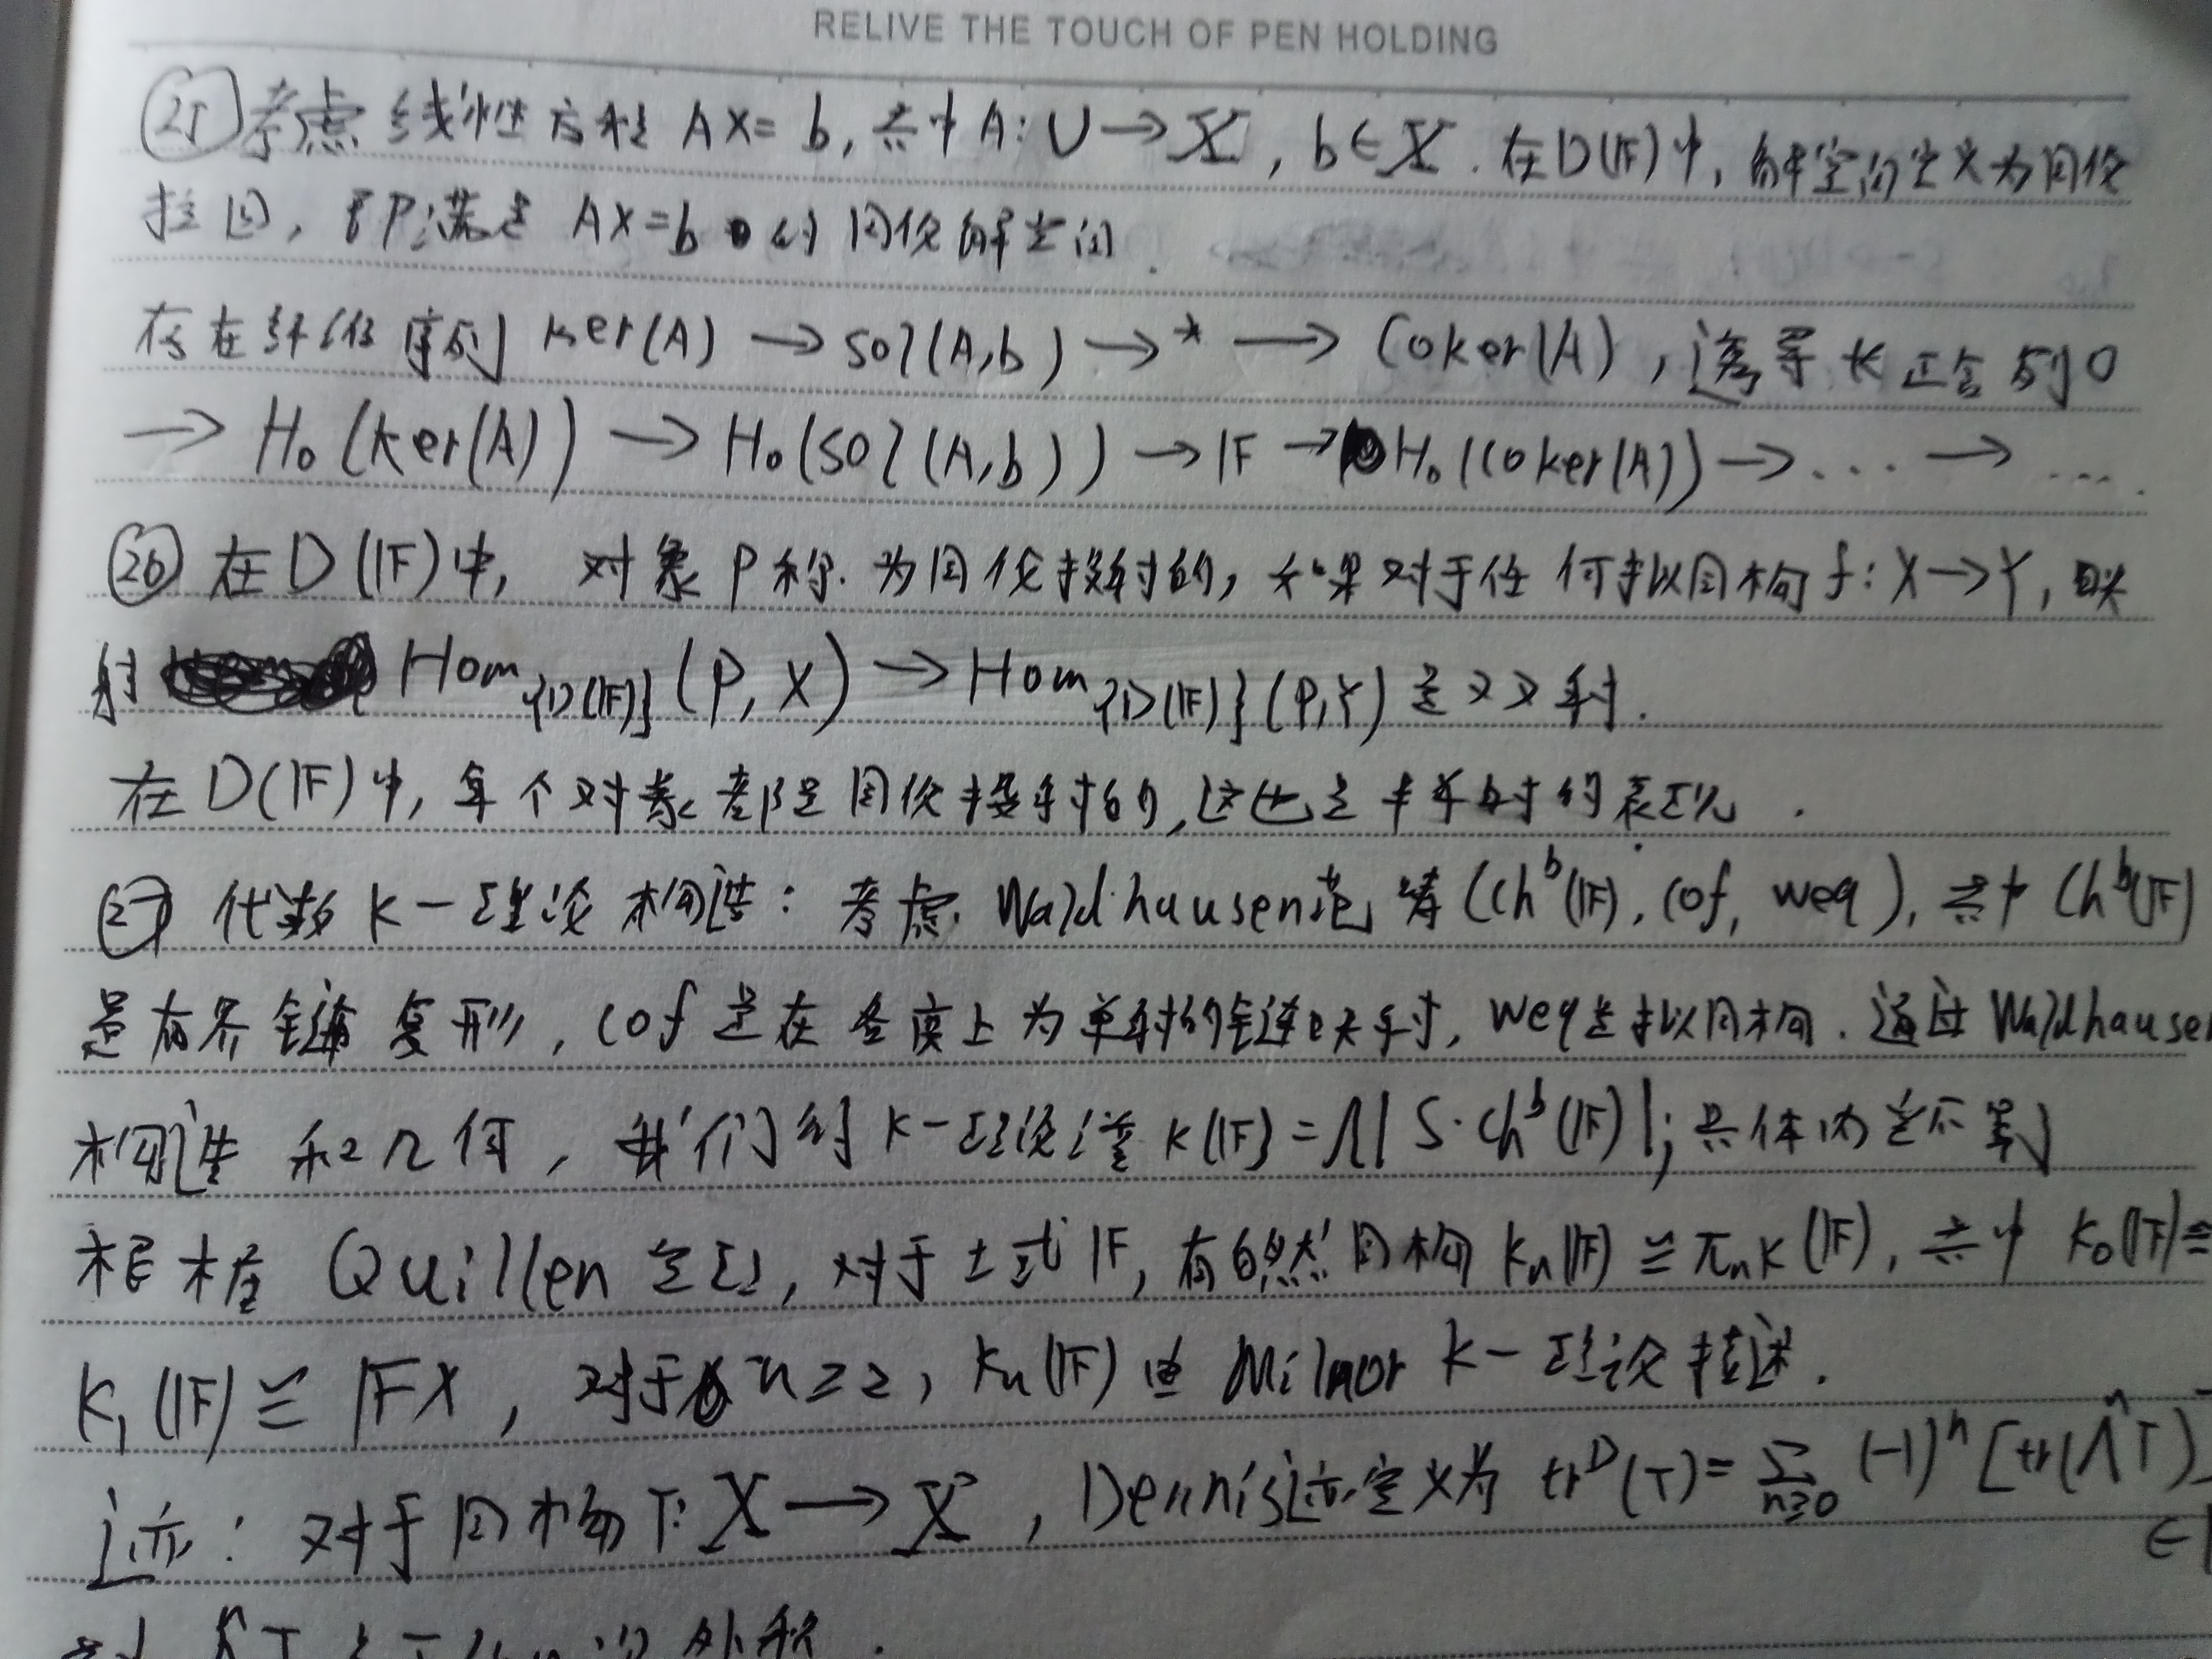 RELIVE THE TOUCH OF PEN HOLDING
㉕考虑线性方程 AX=b, 其中A:U→X, b∈X. 在D(𝔽)中, 解空间定义为同伦
拉回, 即P满足 AX=b 的同伦解空间.
存在纤维序列 ker(A)→sol(A,b)→*→Coker(A), 诱导长正合列0
→H₀(ker(A))→H₀(sol(A,b))→𝔽→H₀(coker(A))→...→....
㉖在D(𝔽)中, 对象P称为同伦投射的, 如果对于任何拟同构f:X→Y, 映
射 Hom_{D(𝔽)}(P,X)→Hom_{D(𝔽)}(P,Y)是双射.
在D(𝔽)中, 每个对象都是同伦投射的, 这也是半单时的表现.
㉗代数K-理论构造: 考虑Waldhausen范畴(Ch^b(𝔽), cof, weq), 其中Ch^b(𝔽)
是有界链复形, cof是在各度上为单射的链映射, weq是拟同构. 通过Waldhause
构造和几何, 我们的K-理论谱K(𝔽)=Λ|S·Ch^b(𝔽)|; 具体内容不写
根据Quillen定理, 对于 𝔽, 有自然同构Kₙ(𝔽)≅πₙK(𝔽), 其中K₀(𝔽)≅
K₁(𝔽)≅𝔽X, 对于n≥2, Kₙ(𝔽)由Milnor K-理论描述.
迹: 对于同构T:X→X, Dennis迹定义为 tr^D(T)=∑_{n≥0}(-1)^n[tr(Λ^n T)
∈
外积.